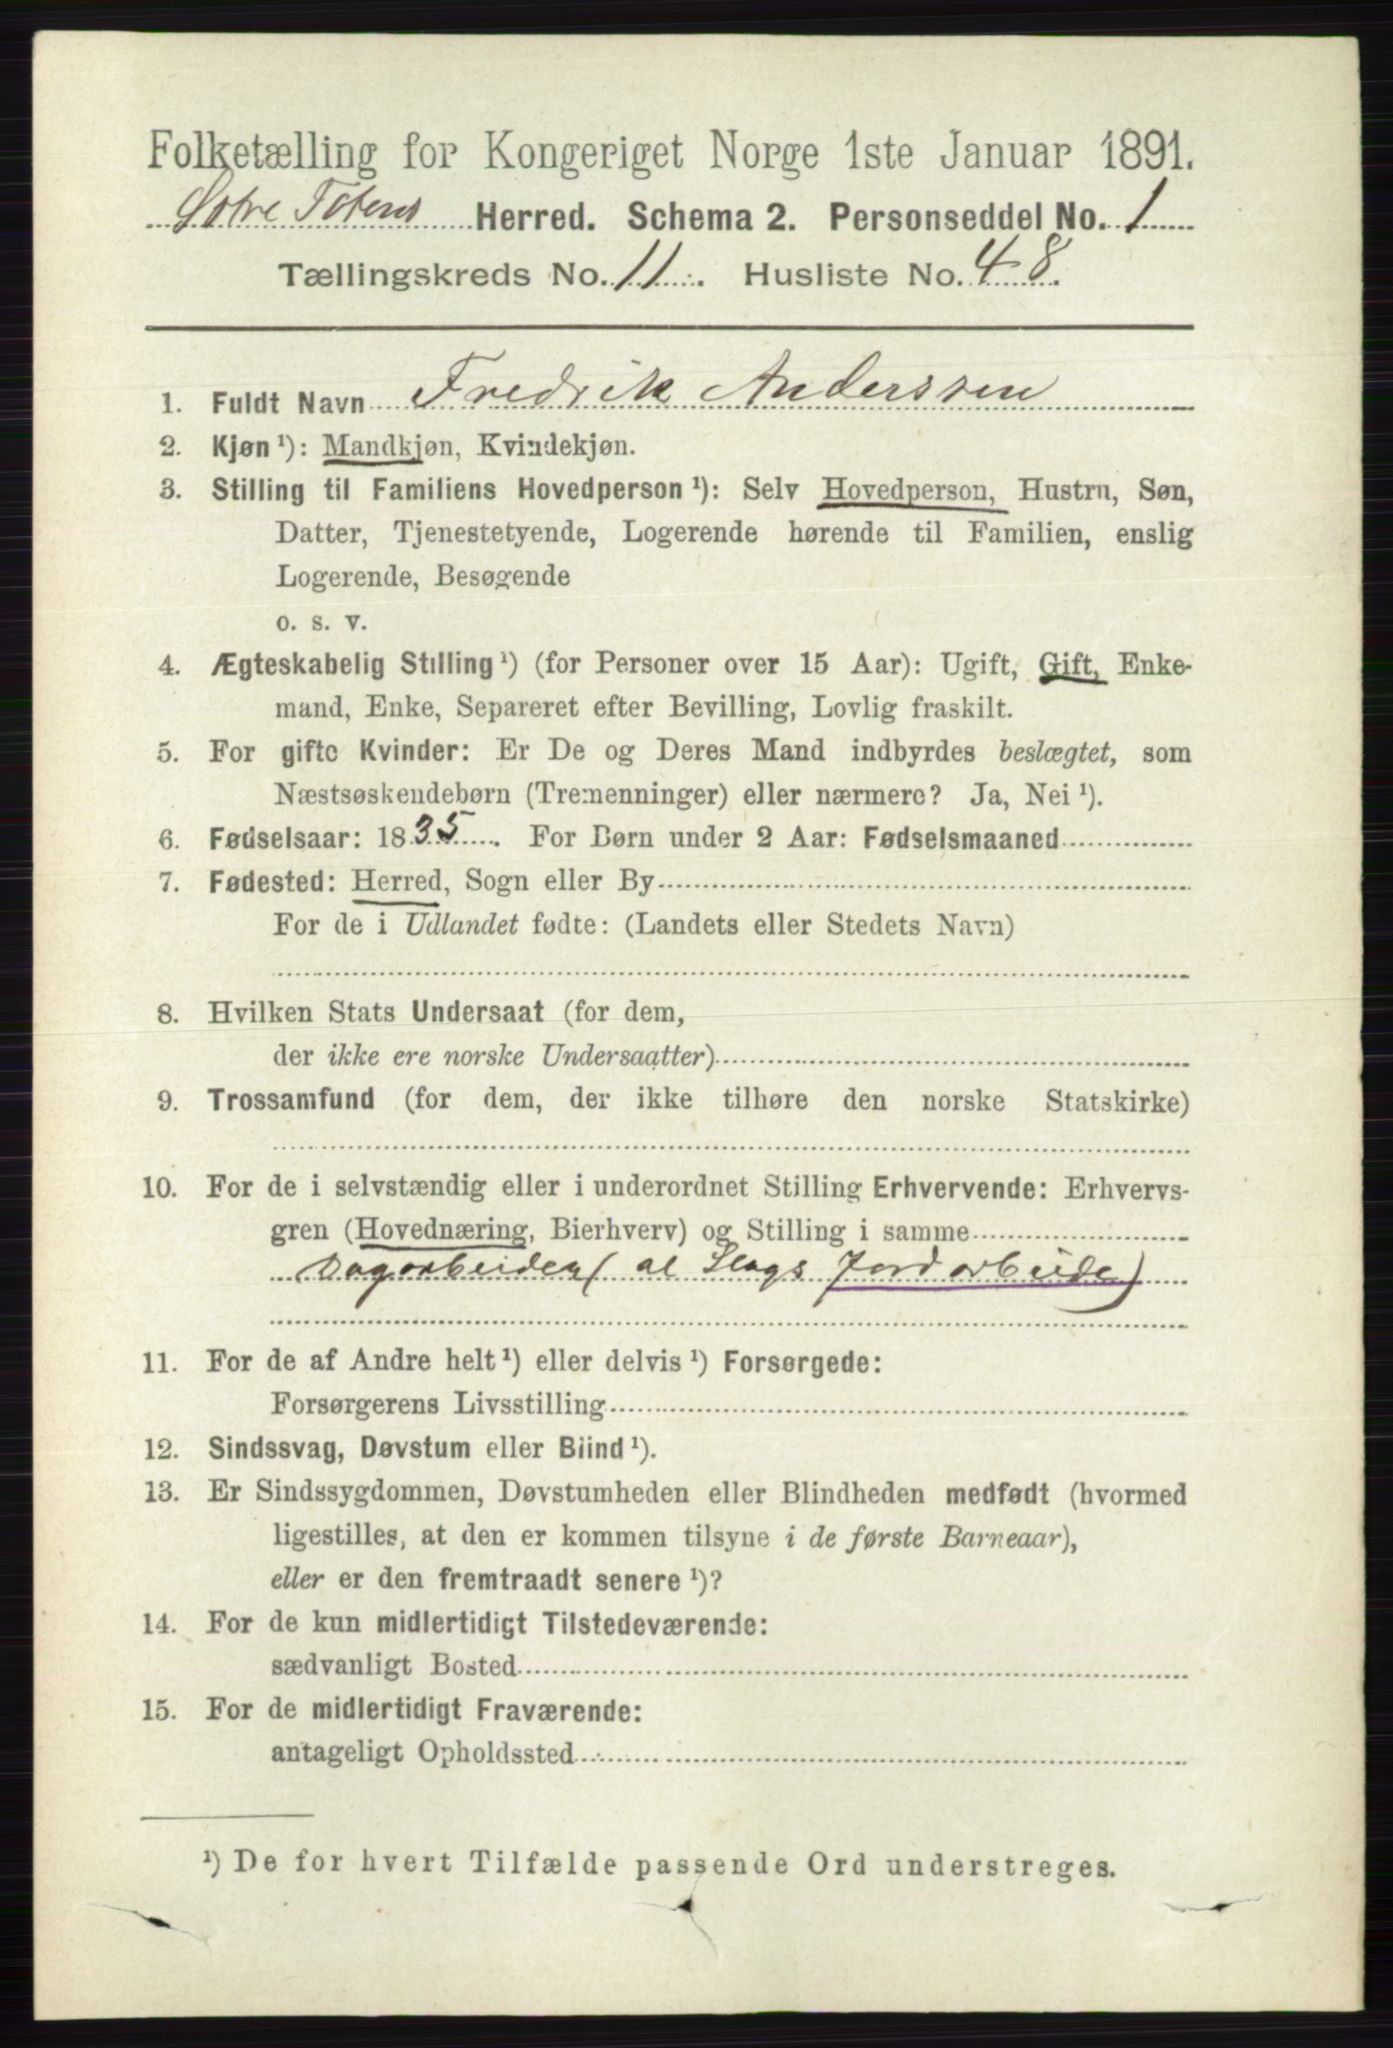 Folketælling for Kongeriget Norge 1ste Januar 1891.
Østre Totens Herred. Schema 2. Personseddel No. 1
Tællingskreds No. 11. Husliste No. 48.
1. Fuldt Navn Fredrik Anderssen
2. Kjøn ¹): Mandkjøn, Kvindekjøn.
3. Stilling til Familiens Hovedperson ¹): Selv Hovedperson, Hustru, Søn,
Datter, Tjenestetyende, Logerende hørende til Familien, enslig
Logerende, Besøgende
o. s. v.
4. Ægteskabelig Stilling ¹) (for Personer over 15 Aar): Ugift, Gift, Enke-
mand, Enke, Separeret efter Bevilling, Lovlig fraskilt.
5. For gifte Kvinder: Er De og Deres Mand indbyrdes beslægtet, som
Næstsøskendebørn (Tremenninger) eller nærmere? Ja, Nei ¹).
6. Fødselsaar: 1835. For Børn under 2 Aar: Fødselsmaaned
7. Fødested: Herred, Sogn eller By
For de i Udlandet fødte: (Landets eller Stedets Navn)
8. Hvilken Stats Undersaat (for dem,
der ikke ere norske Undersaatter)
9. Trossamfund (for dem, der ikke tilhøre den norske Statskirke)
10. For de i selvstændig eller i underordnet Stilling Erhvervende: Erhvervs-
gren (Hovednæring, Bierhverv) og Stilling i samme
Dagarbeider (al Slags Jordarbeide)
11. For de af Andre helt ¹) eller delvis ¹) Forsørgede:
Forsørgerens Livsstilling
12. Sindssvag, Døvstum eller Blind ¹).
13. Er Sindssygdommen, Døvstumheden eller Blindheden medfødt (hvormed
ligestilles, at den er kommen tilsyne i de første Barneaar),
eller er den fremtraadt senere ¹)?
14. For de kun midlertidigt Tilstedeværende:
sædvanligt Bosted
15. For de midlertidigt Fraværende:
antageligt Opholdssted
¹) De for hvert Tilfælde passende Ord understreges.